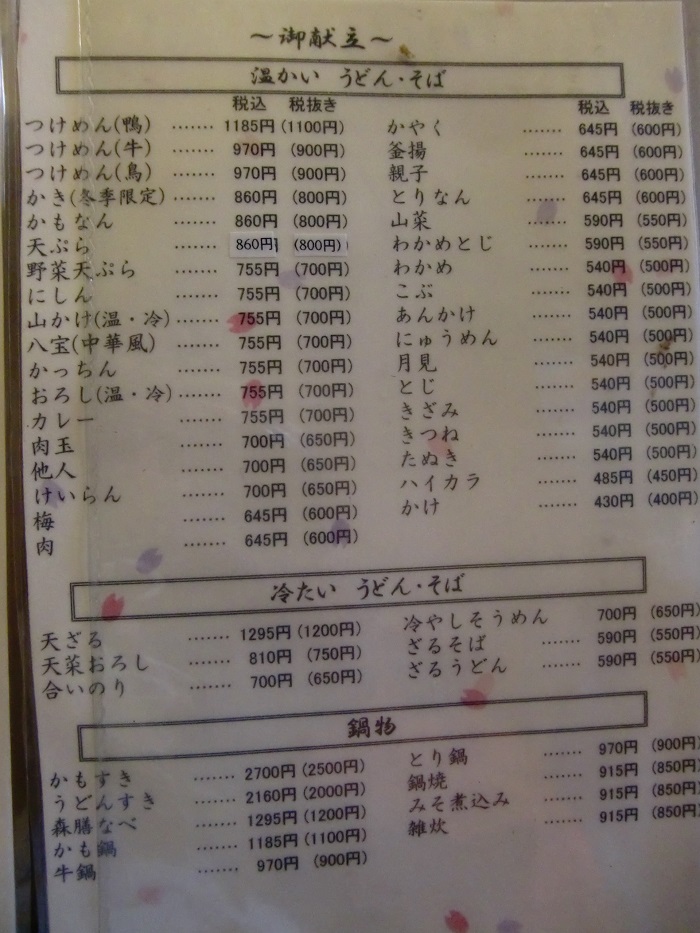 ～御献立～
温かい うどん・そば
税込 税抜き
つけめん(鴨) ……. 1185円 (1100円)
つけめん(牛) ……. 970円 (900円)
つけめん(鳥) ……. 970円 (900円)
かき(冬季限定) ……. 860円 (800円)
かもなん ……. 860円 (800円)
天ぷら ……. 860円 (800円)
野菜天ぷら ……. 755円 (700円)
にしん ……. 755円 (700円)
山かけ(温・冷) ……. 755円 (700円)
八宝(中華風) ……. 755円 (700円)
かっちん ……. 755円 (700円)
おろし(温・冷) ……. 755円 (700円)
カレー ……. 755円 (700円)
肉玉 ……. 700円 (650円)
他人 ……. 700円 (650円)
けいらん ……. 700円 (650円)
梅 ……. 645円 (600円)
肉 ……. 645円 (600円)
税込 税抜き
かやく ……. 645円 (600円)
釜揚 ……. 645円 (600円)
親子 ……. 645円 (600円)
とりなん ……. 645円 (600円)
山菜 ……. 590円 (550円)
わかめとじ ……. 590円 (550円)
わかめ ……. 540円 (500円)
こぶ ……. 540円 (500円)
あんかけ ……. 540円 (500円)
にゅうめん ……. 540円 (500円)
月見 ……. 540円 (500円)
とじ ……. 540円 (500円)
きざみ ……. 540円 (500円)
きつね ……. 540円 (500円)
たぬき ……. 540円 (500円)
ハイカラ ……. 485円 (450円)
かけ ……. 430円 (400円)
冷たい うどん・そば
天ざる ……. 1295円 (1200円)
天菜おろし ……. 810円 (750円)
合いのり ……. 700円 (650円)
冷やしそうめん 700円 (650円)
ざるそば ……. 590円 (550円)
ざるうどん ……. 590円 (550円)
鍋物
かもすき ……. 2700円 (2500円)
うどんすき ……. 2160円 (2000円)
森膳なべ ……. 1295円 (1200円)
かも鍋 ……. 1185円 (1100円)
牛鍋 ……. 970円 (900円)
とり鍋 ……. 970円 (900円)
鍋焼 ……. 915円 (850円)
みそ煮込み ……. 915円 (850円)
雑炊 ……. 915円 (850円)